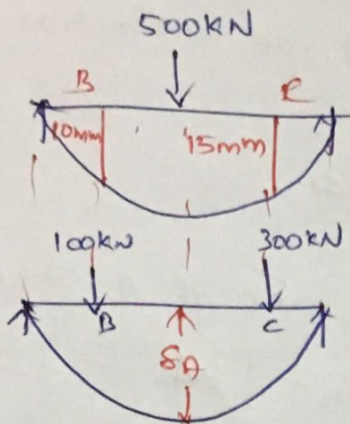 500KN
B C
10mm 15mm
100KN 300KN
B C
δA